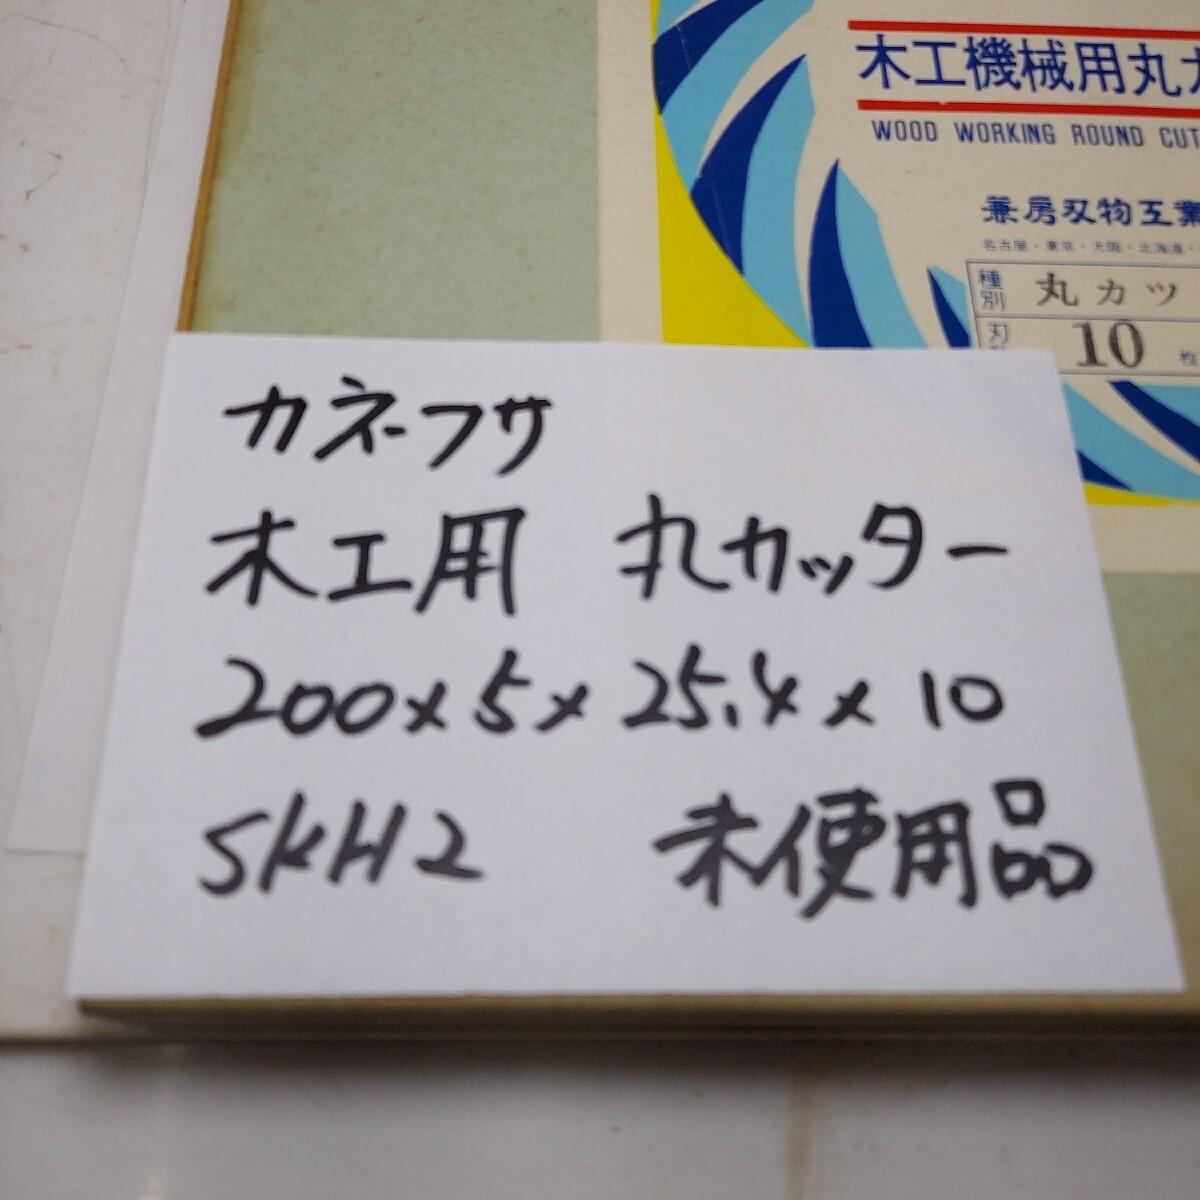 木工機械用丸カ
WOOD WORKING ROUND CUT
兼房刃物工業
名古屋・東京・大阪・北海道・
種別 丸カツ
刃 10 枚
カネフサ
木工用 丸カッター
200×5×25.4×10
SKH2 未使用品